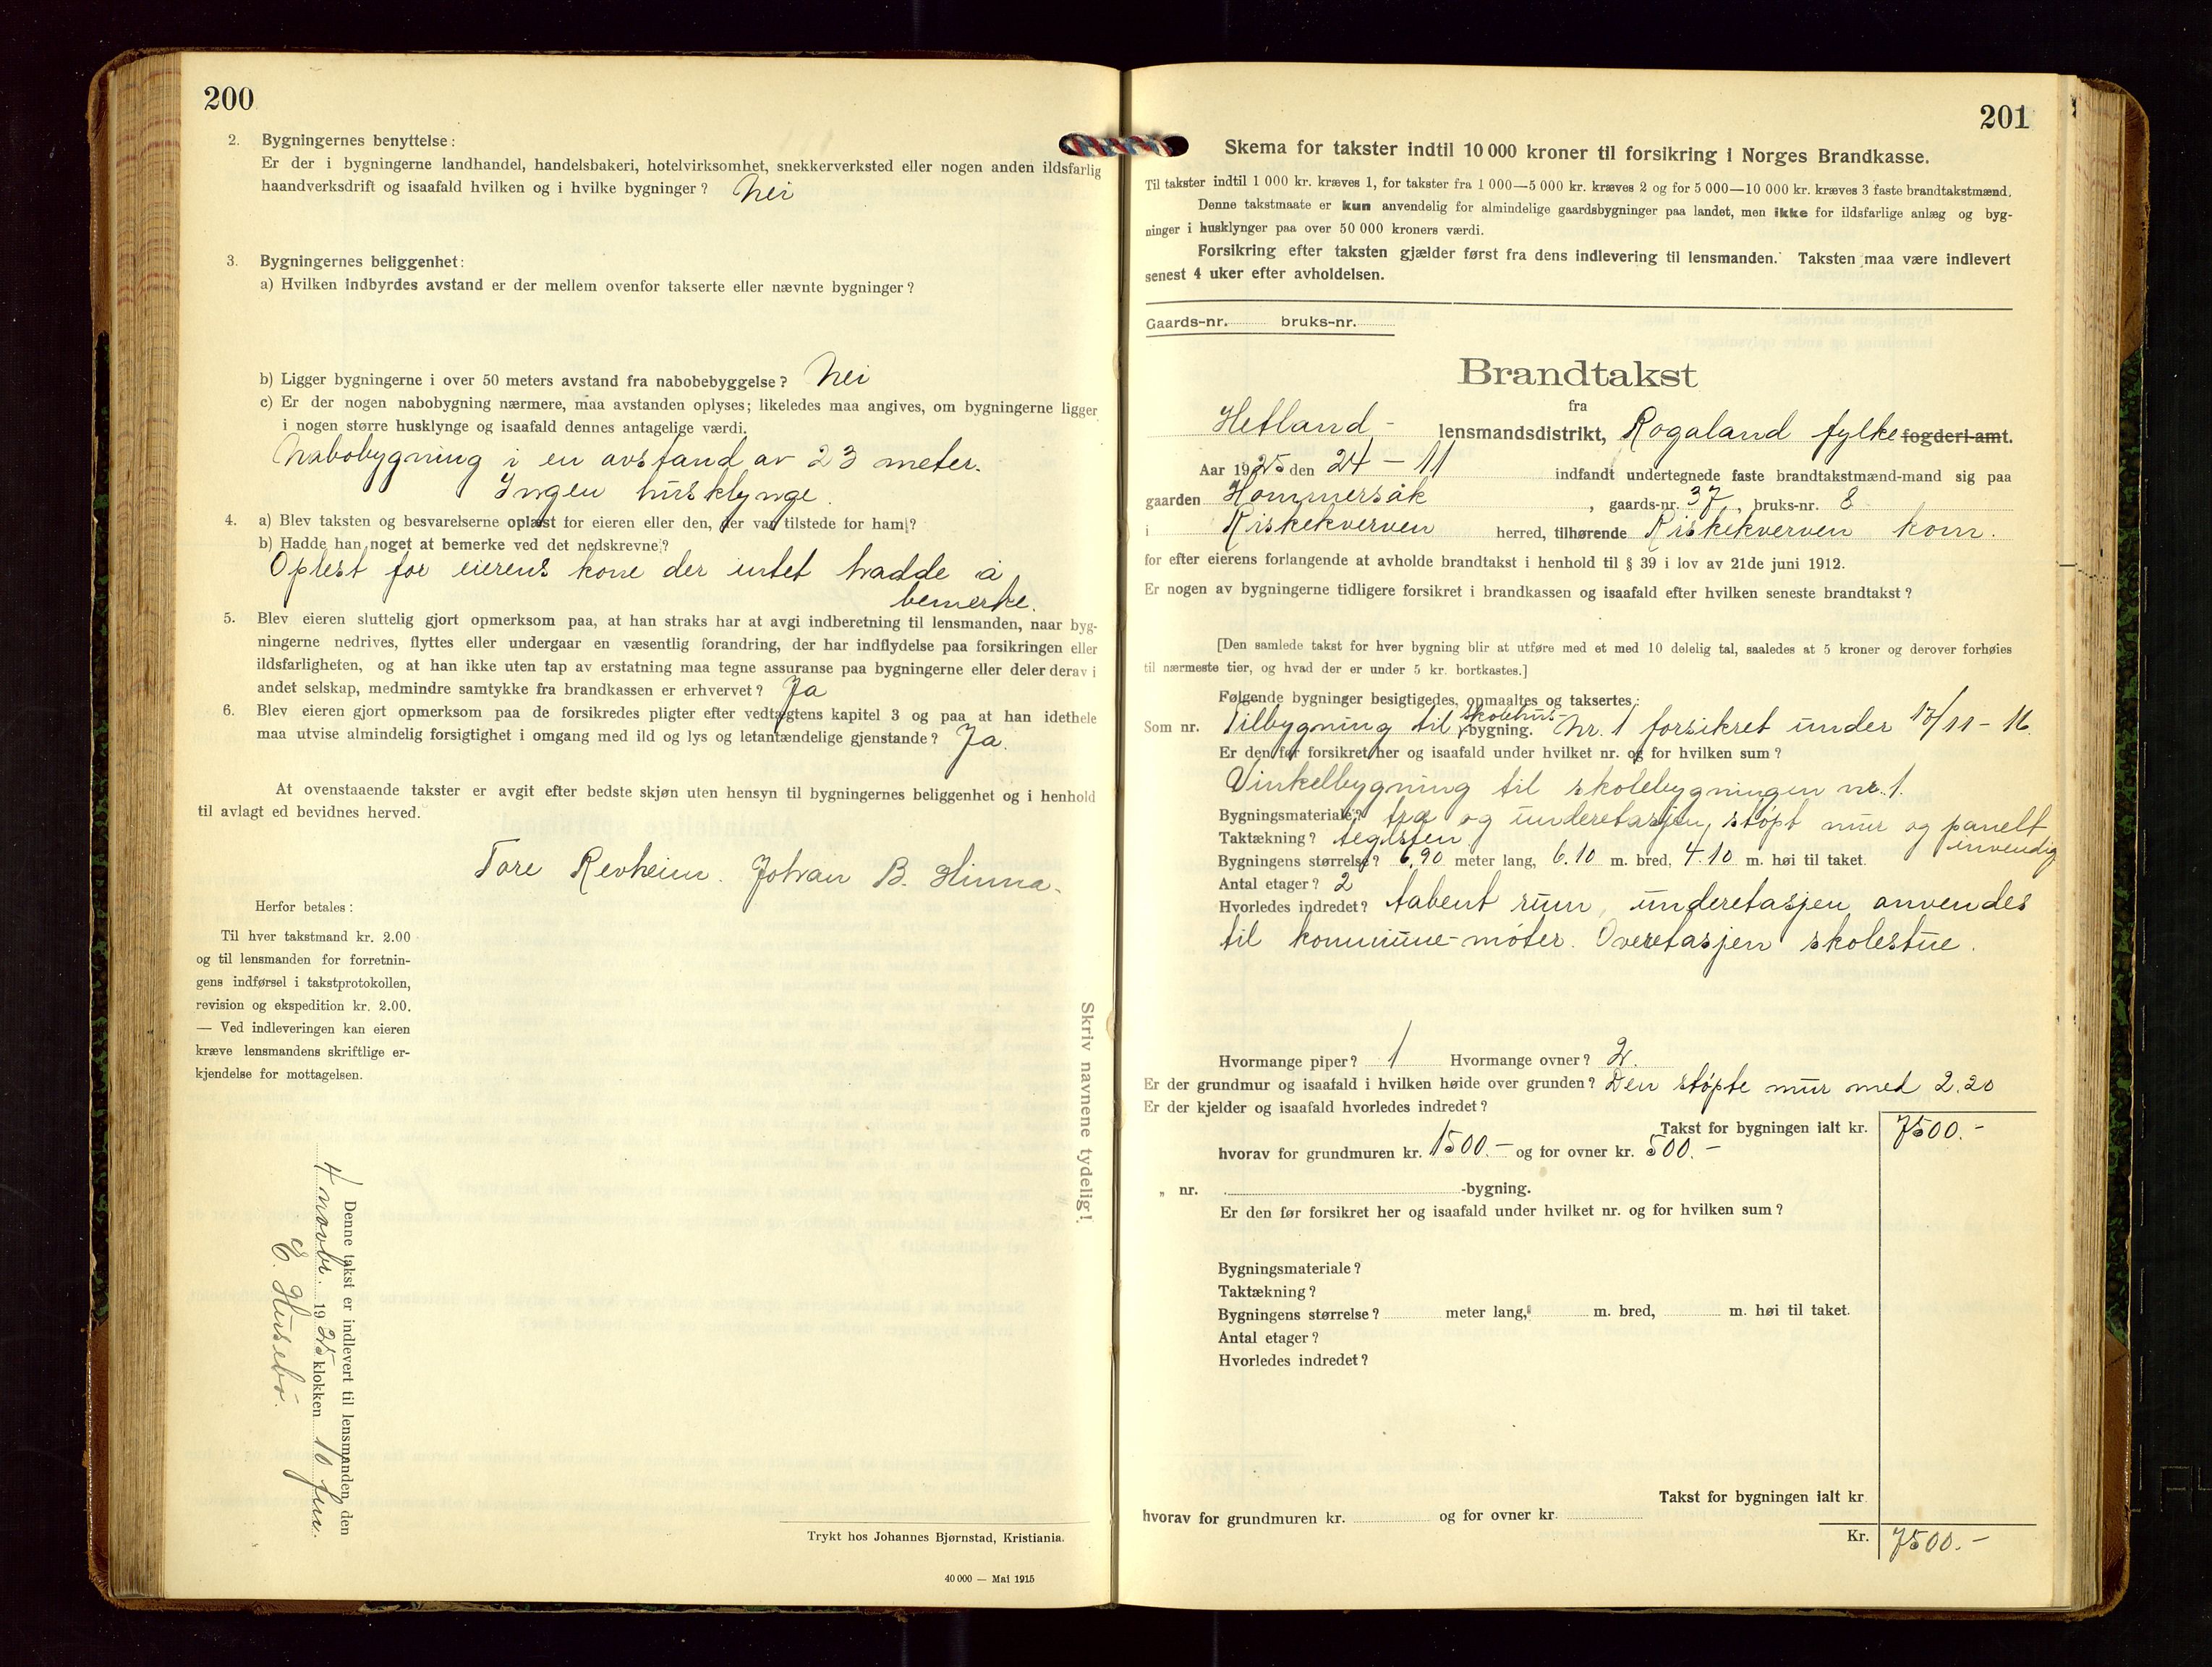 200
2. Bygningernes benyttelse:
Er der i bygningerne landhandel, handelsbakeri, hotelvirksomhet, snekkerverksted eller nogen anden ildsfarlig
haandverksdrift og isaafald hvilken og i hvilke bygninger? Nei
3. Bygningernes beliggenhet:
a) Hvilken indbyrdes avstand er der mellem ovenfor takserte eller nævnte bygninger?
b) Ligger bygningerne i over 50 meters avstand fra nabobebyggelse? Nei
c) Er der nogen nabobygning nærmere, maa avstanden oplyses; likeledes maa angives, om bygningerne ligger
i nogen større husklynge og isaafald dennes antagelige værdi.
Nabobygning i en avstand av 23 meter.
Ingen husklynge.
4. a) Blev taksten og besvarelserne oplæst for eieren eller den, der var tilstede for ham?
b) Hadde han noget at bemerke ved det nedskrevne?
Oplest for eierens kone der intet hadde å
bemerke.
5. Blev eieren sluttelig gjort opmerksom paa, at han straks har at avgi indberetning til lensmanden, naar byg-
ningerne nedrives, flyttes eller undergaar en væsentlig forandring, der har indflydelse paa forsikringen eller
ildsfarligheten, og at han ikke uten tap av erstatning maa tegne assuranse paa bygningerne eller deler derav i
andet selskap, medmindre samtykke fra brandkassen er erhvervet? Ja
6. Blev eieren gjort opmerksom paa de forsikredes pligter efter vedtægtens kapitel 3 og paa at han idethele
maa utvise almindelig forsigtighet i omgang med ild og lys og letantændelige gjenstande? Ja.
At ovenstaaende takster er avgit efter bedste skjøn uten hensyn til bygningernes beliggenhet og i henhold
til avlagt ed bevidnes herved.
Tore Revheim. Johan B. Hinna.
Herfor betales:
Til hver takstmand kr. 2.00
og til lensmanden for forretnin-
gens indførsel i takstprotokollen,
revision og ekspedition kr. 2.00.
— Ved indleveringen kan eieren
kræve lensmandens skriftlige er-
kjendelse for mottagelsen.
Skriv navnene tydelig!
Denne takst er indlevert til lensmanden den
4 novbr. 1925 klokken 10 fm.
E. Husebø.
Trykt hos Johannes Bjørnstad, Kristiania.
40 000 — Mai 1915
201
Skema for takster indtil 10 000 kroner til forsikring i Norges Brandkasse.
Til takster indtil 1 000 kr. kræves 1, for takster fra 1 000—5 000 kr. kræves 2 og for 5 000—10 000 kr. kræves 3 faste brandtakstmænd.
Denne takstmaate er kun anvendelig for almindelige gaardsbygninger paa landet, men ikke for ildsfarlige anlæg og byg-
ninger i husklynger paa over 50 000 kroners værdi.
Forsikring efter taksten gjælder først fra dens indlevering til lensmanden. Taksten maa være indlevert
senest 4 uker efter avholdelsen.
Gaards-nr. bruks-nr.
Brandtakst
fra
Hetland - lensmandsdistrikt, Rogaland fylke fogderi-amt.
Aar 1925 den 24 - 11 indfandt undertegnede faste brandtakstmænd-mand sig paa
gaarden Hommersåk, gaards-nr. 37, bruks-nr. 8
i Riskekverven herred, tilhørende Riskekverven kom.
for efter eierens forlangende at avholde brandtakst i henhold til § 39 i lov av 21de juni 1912.
Er nogen av bygningerne tidligere forsikret i brandkassen og isaafald efter hvilken seneste brandtakst?
[Den samlede takst for hver bygning blir at utføre med et med 10 delelig tal, saaledes at 5 kroner og derover forhøies
til nærmeste tier, og hvad der er under 5 kr. bortkastes.]
Følgende bygninger besigtigedes, opmaaltes og taksertes:
Som nr. Tilbygning til skolehus-bygning. Nr. 1 forsikret under 17/11 - 16.
Er den før forsikret her og isaafald under hvilket nr. og for hvilken sum?
Vinkelbygning til skolebygningen nr. 1.
Bygningsmateriale? træ og underetasjen, støpt mur og panelt
invendig
Taktækning? teglsten.
Bygningens størrelse? 6,90 meter lang, 6.10 m. bred, 4.10 m. høi til taket.
Antal etager? 2
Hvorledes indredet? Aabent rum, underetasjen anvendes
til kommune-møter. Overetasjen skolestue.
Hvormange piper? 1 Hvormange ovner? 2.
Er der grundmur og isaafald i hvilken høide over grunden? Den støpte mur med 2.20
Er der kjelder og isaafald hvorledes indredet?
Takst for bygningen ialt kr. 7500.-
hvorav for grundmuren kr. 1500.- og for ovner kr. 500.-
„ nr. -bygning.
Er den før forsikret her og isaafald under hvilket nr. og for hvilken sum?
Bygningsmateriale?
Taktækning?
Bygningens størrelse? meter lang, m. bred, m. høi til taket.
Antal etager?
Hvorledes indredet?
Takst for bygningen ialt kr
hvorav for grundmuren kr. og for ovner kr.
Kr. 7500.-